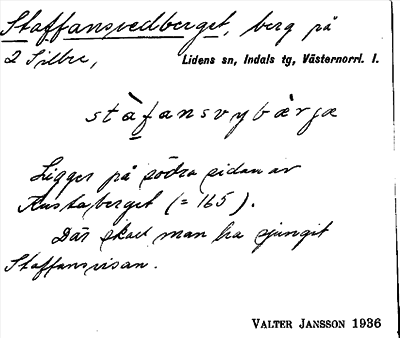 Staffansvedberget, berg på
2 Silbre, Lidens sn, Indals tg, Västernorrl. l.
stàfansvybærjæ
Ligger på södra sidan av
Anstaberget (= 165).
Där skall man ha sjungit
Staffansvisan.
VALTER JANSSON 1936